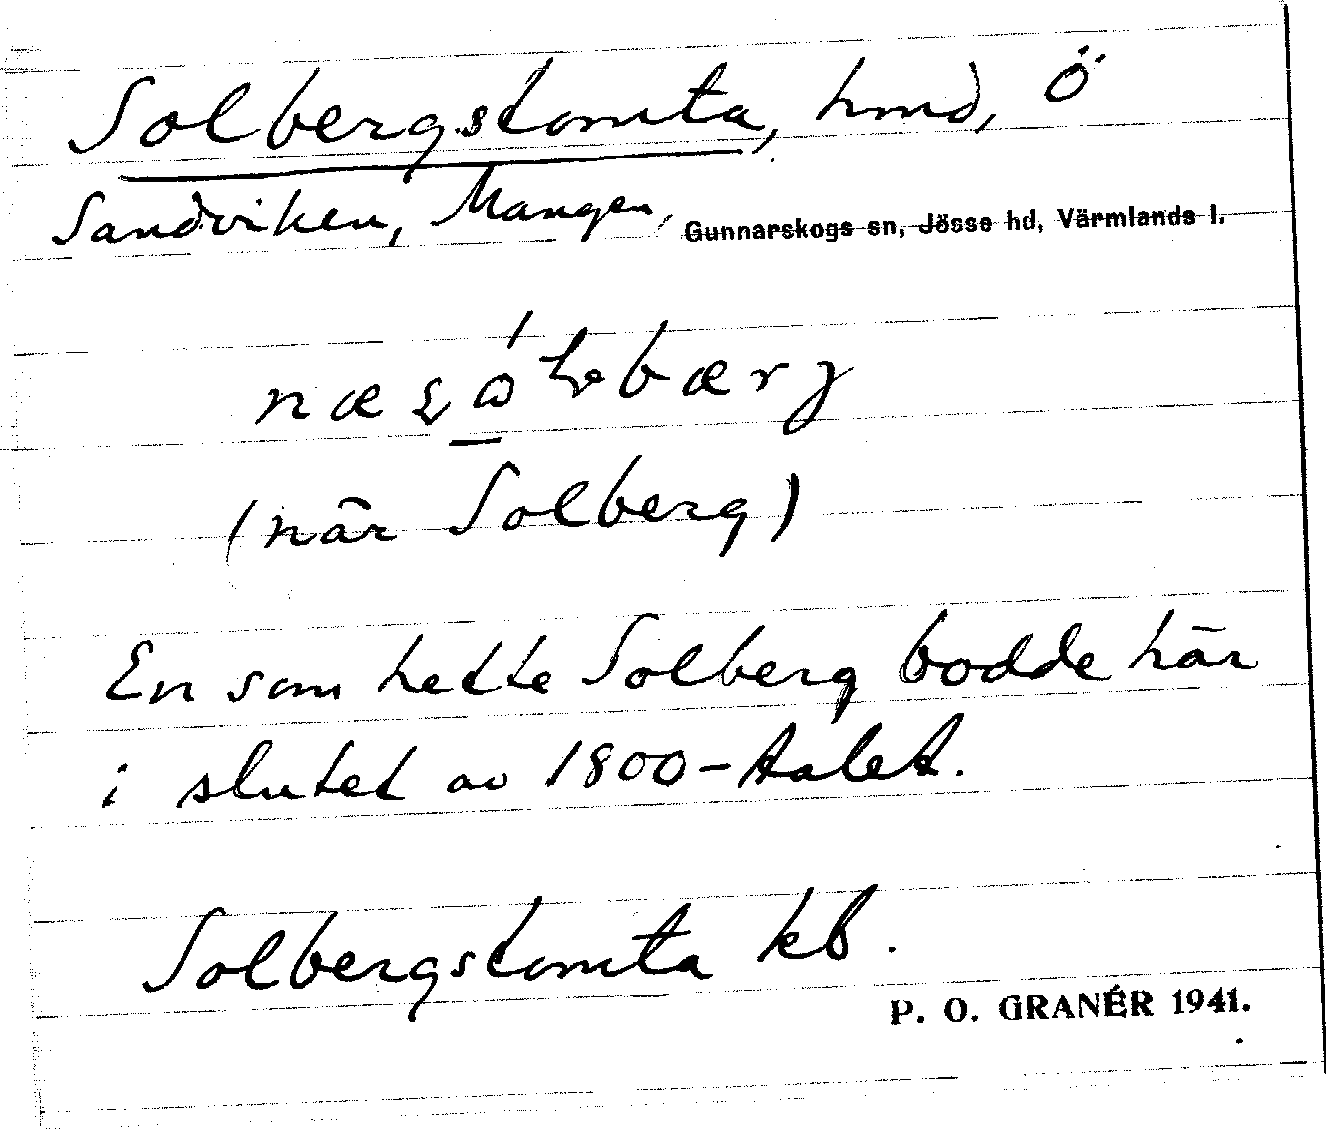 Solbergstomta, hmd, Ö
Sandviken, Mangen, Gunnarskogs sn, Jösse hd, Värmlands l.
(när Solberg)
En som hette Solberg bodde här
i slutet av 1800-talet.
Solbergstomta kb.
P. O. GRANÉR 1941.